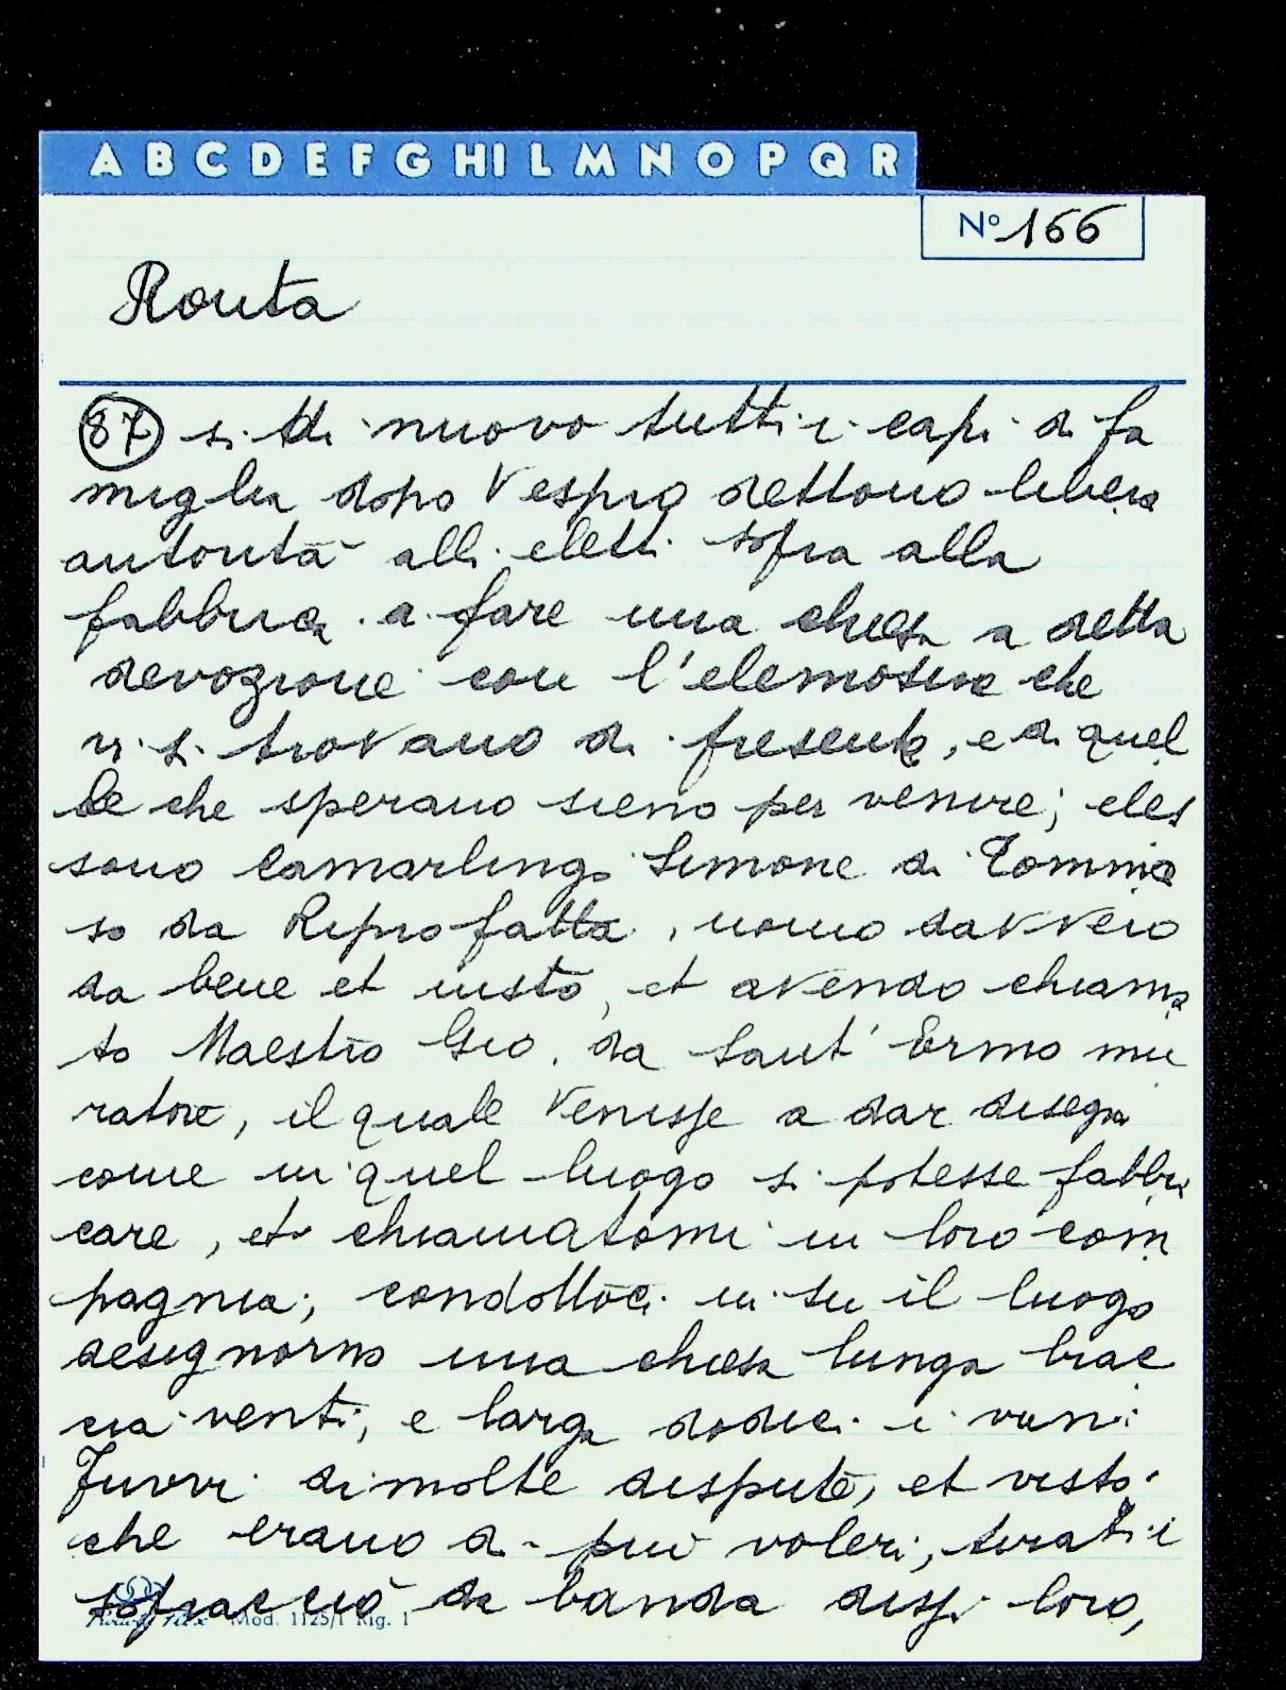 A B C D E F G HI L M N O P Q R
Nº 166
Ronta
87 si. di nuovo tutti i capi di fa
miglia dopo Vespro dettono libera
autorità alli eletti sopra alla
fabbrica a fare una chiesa a detta
devozione con l'elemosine che
vi si trovano di presente, e di quel
le che sperano sieno per venire;
sono camarlingo Simone di Tomma
so da Riprofatta, uomo davvero
da bene et iusto, et avendo chiama
to Maestro Gio. da Sant' Ermo mu
ratore, il quale venisse a dar disegno
come in quel luogo si potesse fabbri
care, et chiamatomi in loro com
pagnia; condottoci in su il luogo
designorno una chiesa lunga brac
cia venti, e larga dodici i vani
Furvi di molte dispute, et visto
che erano di più voleri, tirati i
da banda dissi loro,
Mod. 1125/1 Rig. 1